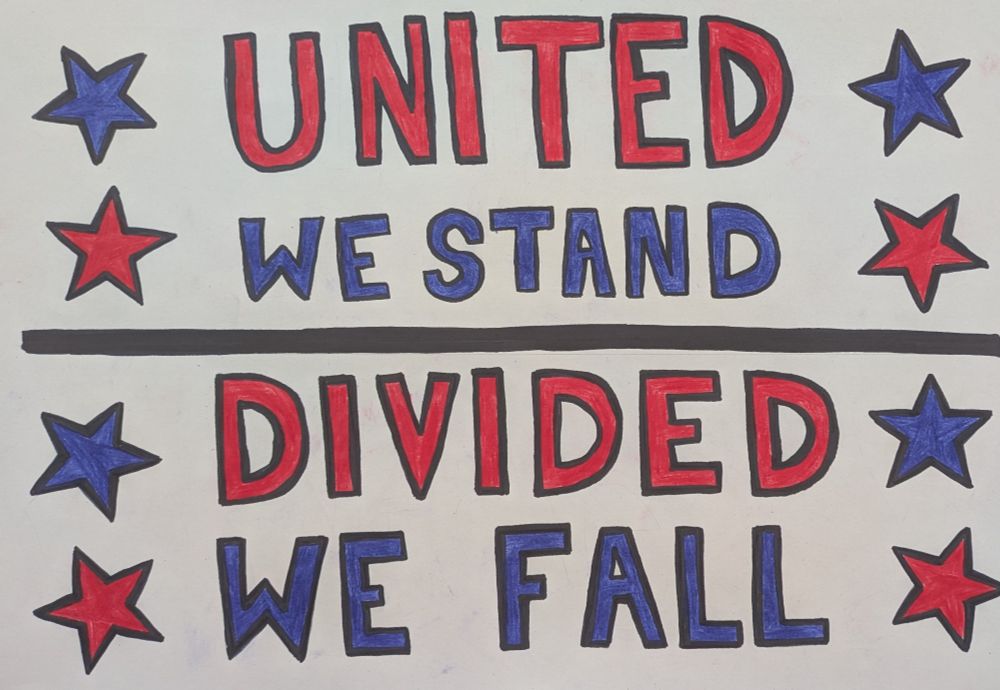 UNITED
WE STAND
DIVIDED
WE FALL